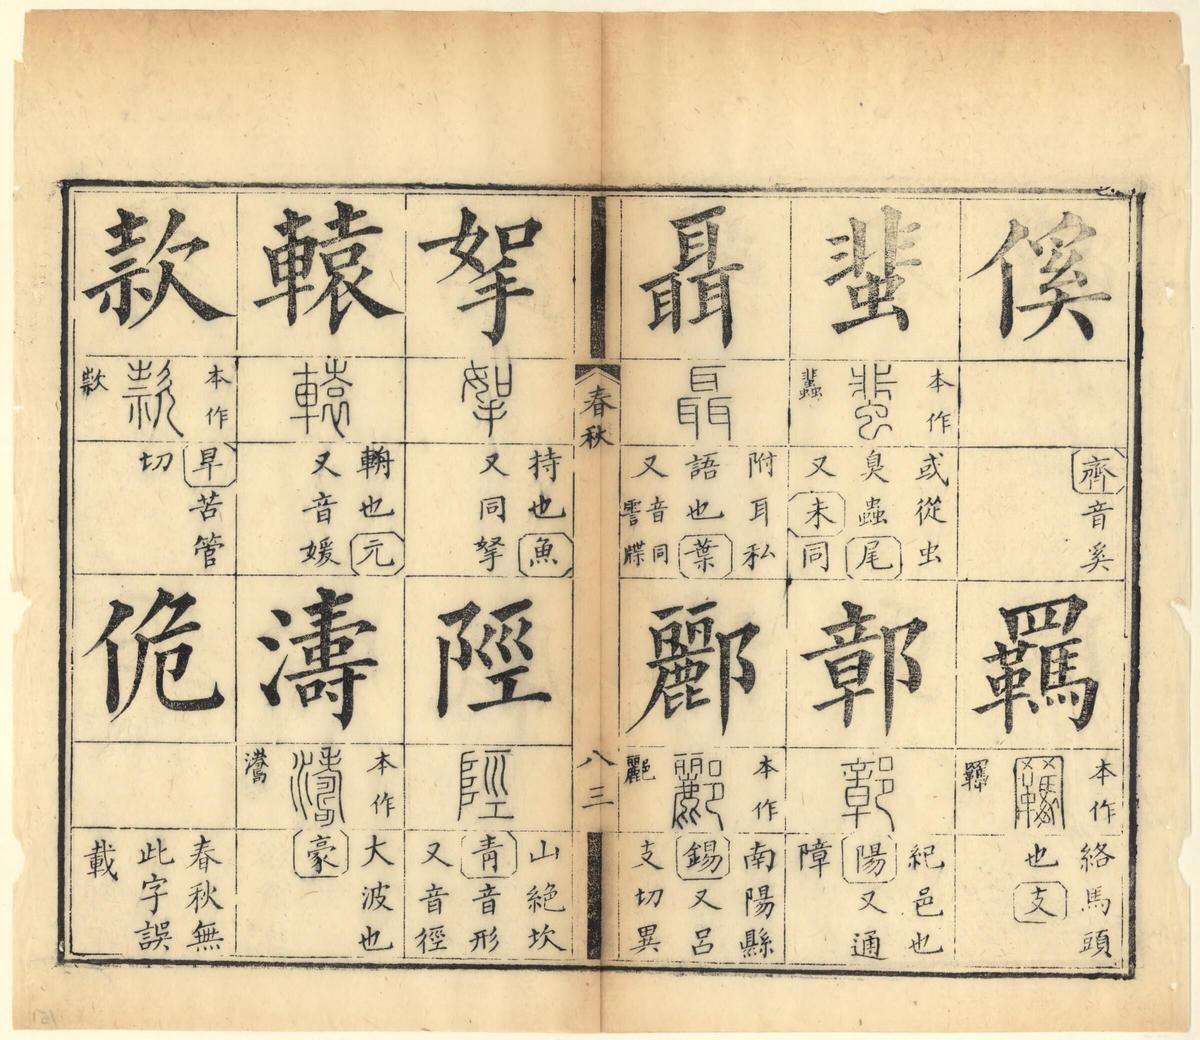 傒
齊音奚
蜚
本作
蟲
或從虫
臭蟲尾
又未同
聶
聶
附耳私
語也葉
又音同讘牒
羈
本作
羈
絡馬頭
也支
鄣
鄣
紀邑也
陽又通
障
酈
本作
酈
南陽縣
錫又呂
支切異
春秋
八三
挐
挐
持也魚
又同拏
轅
轅
輈也元
又音媛
款
本作
款
旱苦管
切
陘
陘
山絶坎
青音形
又音徑
濤
本作
濤
大波也
豪
佹
春秋無
此字誤
載